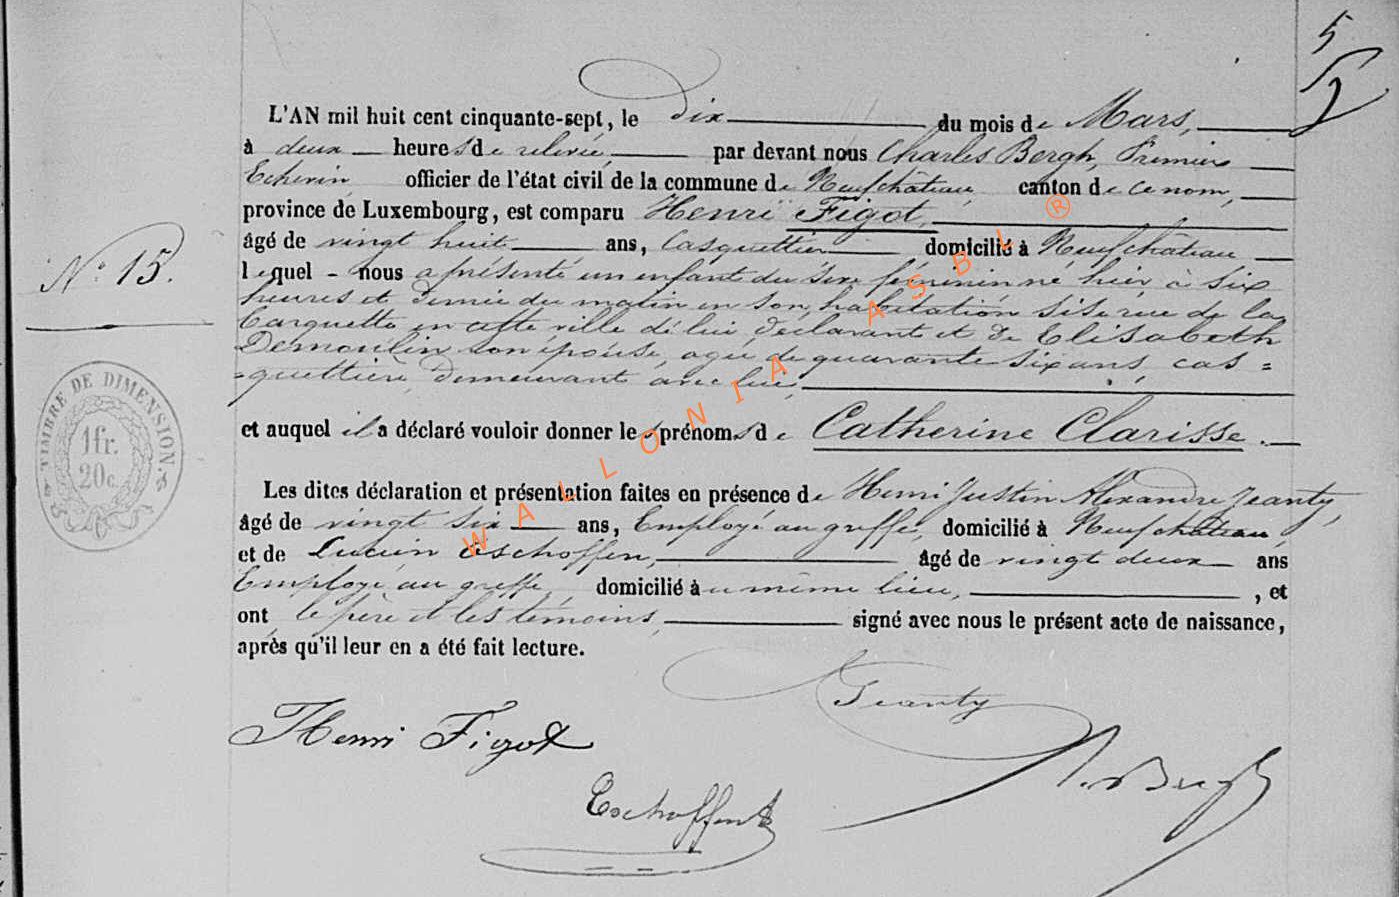 5
2
L'AN mil huit cent cinquante-sept, le dix du mois de Mars,
à deux heures de relevée, par devant nous Charles Bergh, Premier
Echevin, officier de l'état civil de la commune de Neufchâteau, canton de ce nom,
province de Luxembourg, est comparu Henri Figot,
âgé de vingt huit ans, Casquettier domicilié à Neufchâteau
lequel - nous a présenté un enfant du sexe féminin né hier à six
N° 15.
heures et demie du matin en son habitation sise rue de la
Casquette en cette ville de lui, déclarant et de Elisabeth
Demoulin son épouse, agée de quarante six ans, cas=
=quettière, demeurant avec lui,
et auquel il a déclaré vouloir donner les prénoms de Catherine Clarisse.
TIMBRE DE DIMENSION.
1fr.
20c.
Les dites déclaration et présentation faites en présence de Henri Justin Alexandre Jeanty,
âgé de vingt six ans, Employé au greffe, domicilié à Neufchâteau
et de Lucien Eschoffen, âgé de vingt deux ans
Employé au greffe, domicilié au même lieu, , et
ont le père et les témoins, signé avec nous le présent acte de naissance,
après qu'il leur en a été fait lecture.
Jeanty
Henri Figot
Bergh
Eschoffen
WALLONIA ASBL ®